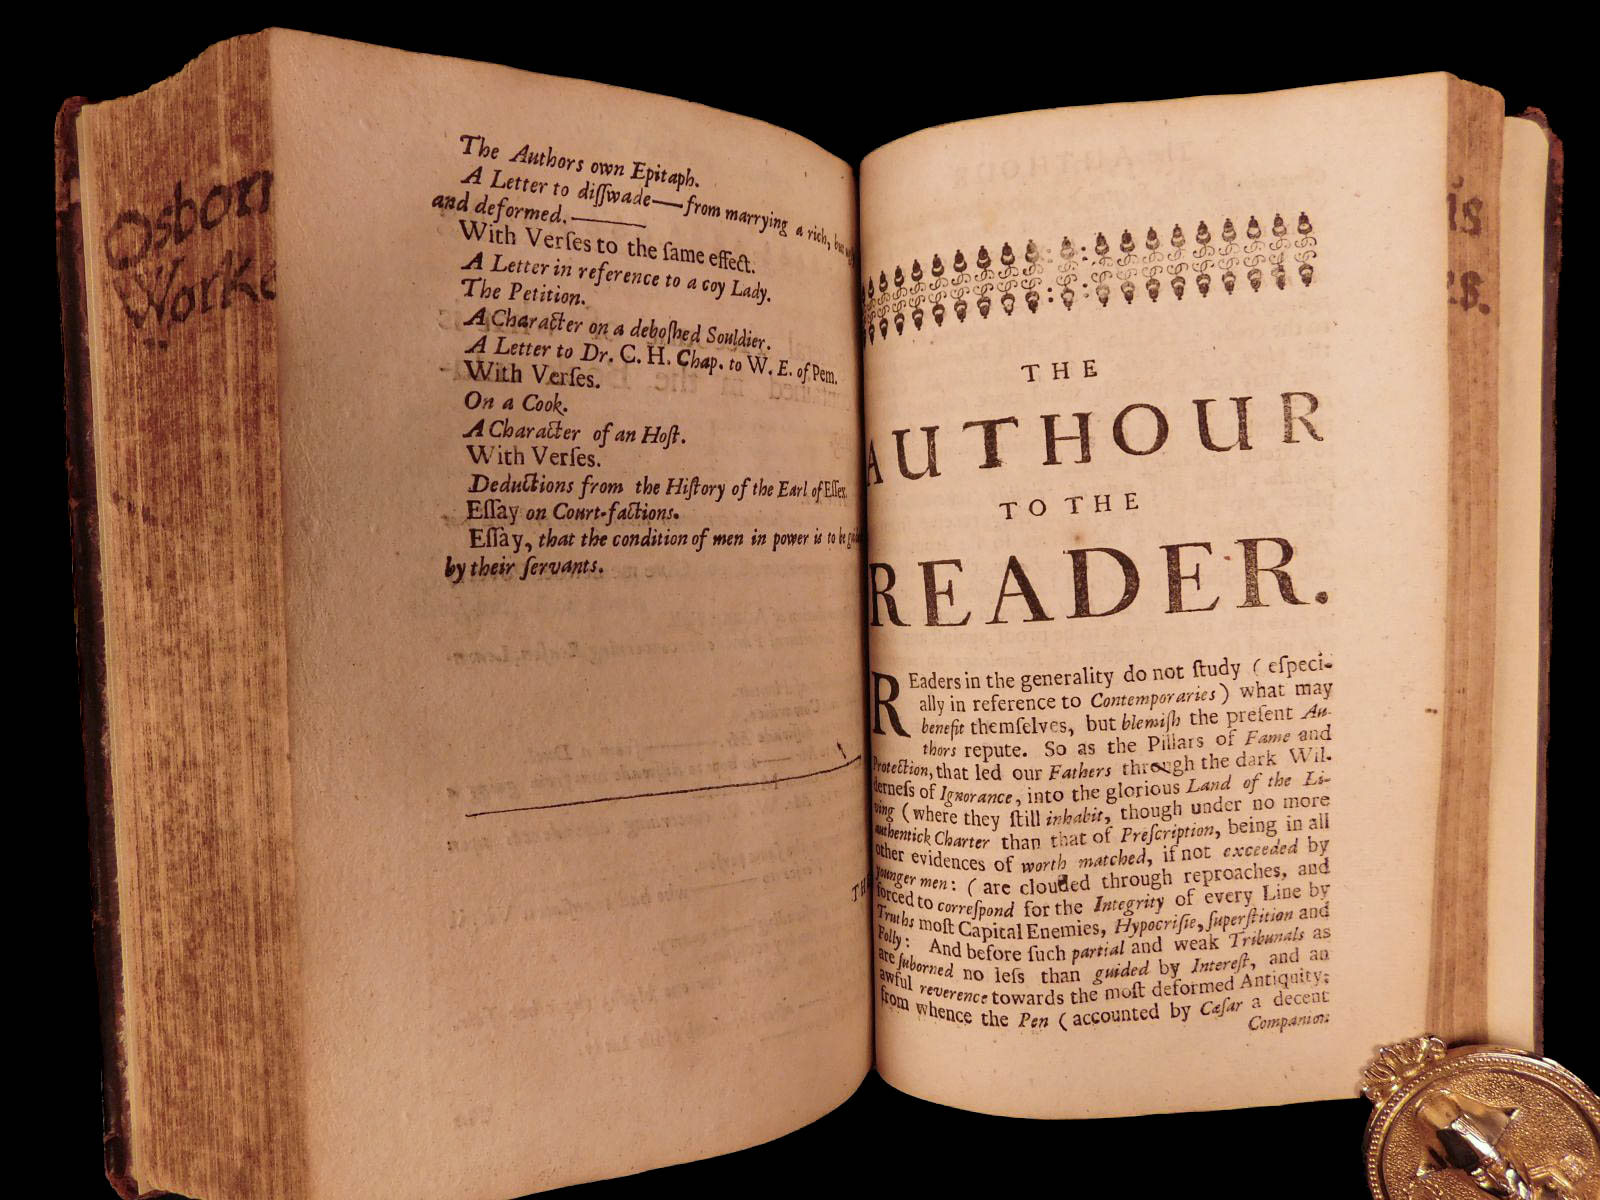 Osborn
Worke
The Authors own Epitaph.
A Letter to diſſwade—from marrying a rich, but
and deformed.
With Verſes to the ſame effect.
A Letter in reference to a coy Lady.
The Petition.
A Character on a deboſhed Souldier.
A Letter to Dr. C. H. Chap. to W. E. of Pem.
With Verſes.
On a Cook.
A Character of an Hoſt.
With Verſes.
Deductions from the Hiſtory of the Earl of Eſſex.
Eſſay on Court-factions.
Eſſay, that the condition of men in power is to be
by their ſervants.
THE
AUTHOUR
TO THE
READER.
REaders in the generality do not ſtudy ( eſpeci-
ally in reference to Contemporaries) what may
benefit themſelves, but blemiſh the preſent Au-
thors repute. So as the Pillars of Fame and
Protection, that led our Fathers through the dark Wil-
derneſs of Ignorance, into the glorious Land of the Li-
ving (where they ſtill inhabit, though under no more
authentick Charter than that of Preſcription, being in all
other evidences of worth matched, if not exceeded by
younger men: ( are clouded through reproaches, and
forced to correſpond for the Integrity of every Line by
Truths moſt Capital Enemies, Hypocriſie, ſuperſtition and
Folly: And before ſuch partial and weak Tribunals as
are ſuborned no leſs than guided by Intereſt, and an
awful reverence towards the moſt deformed Antiquity;
from whence the Pen ( accounted by Cæſar a decent
Companion
is
s.